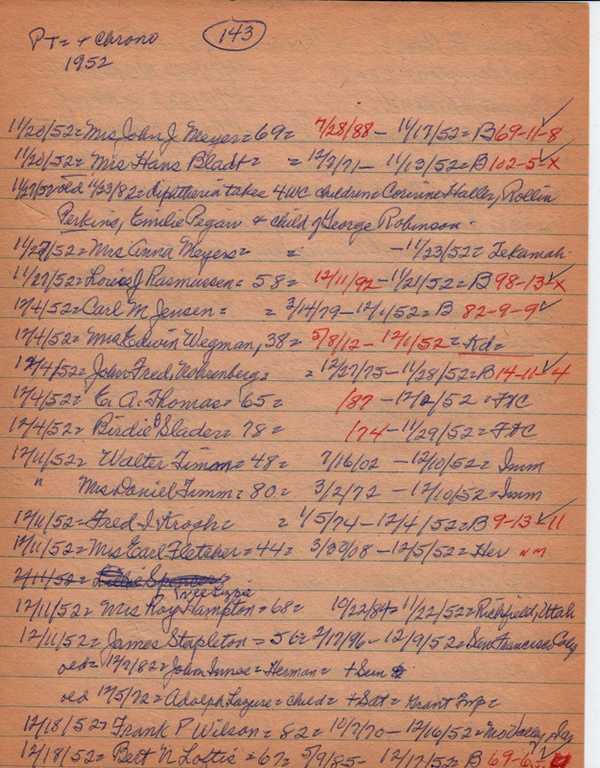 PT= + Chrono 143
1952
11/20/52= Mrs John J Meyer= 69= 7/28/88- 11/17/52= B 69-11-8
11/20/52= Mrs Hans Bladt= = 12/7/71- 11/13/52= B 102-5-X
11/27/52 old 11/23/82= Diptheria takes 4 WC children= Corinne Haller, Rollin
Perkins, Emilie Pegau + child of George Robinson.
11/27/52= Mrs Anna Meyers= = -11/23/52= Tekamah
11/27/52= Louis J Rasmussen= 58= 12/11/92-11/21/52= B 98-13-X
12/4/52= Carl M Jensen= = 3/14/79-12/1/52= B 82-9-9
12/4/52= Mrs Edwin Wegman, 38= 5/8/12- 12/1/52= Kd=
12/4/52= John Fred = 12/27/75-11/28/52= B 14-11-4
12/4/52= E. A. Thomas= 65= /87 -12/2/52 =FtC
12/4/52= Birdie B Slader= 78= /74-11/29/52= FtC
12/11/52= Walter Timm= 48= 7/16/02 -12/10/52= Imm
" Mrs Daniel Timm= 80= 3/2/72 -12/10/52= Imm
12/11/52= Fred I. Krogh= = 1/5/74-12/4/52= B 9-13-11
12/11/52= Mrs Earl Fletcher= 44= 3/30/08-12/5/52= Her NM
2/11/52= Lillie Spencer=
nee Lizzie
12/11/52= Mrs Roy Hampton= 68= 10/22/84= 11/22/52= Richfield, Utah
12/11/52= James Stapleton= 56= 2/17/96- 12/9/52= San Francisco
old= 12/9/82= John Innes= Herman= + Sun
old 12/5/72= Adolph Lazure= child= + Sat= Grant Twp=
12/18/52= Frank P Wilson= 82= 10/7/70- 12/16/52= Mo Valley,
12/18/52= Bert N Loftis= 67= 5/9/85- 12/17/52= B 69-6-